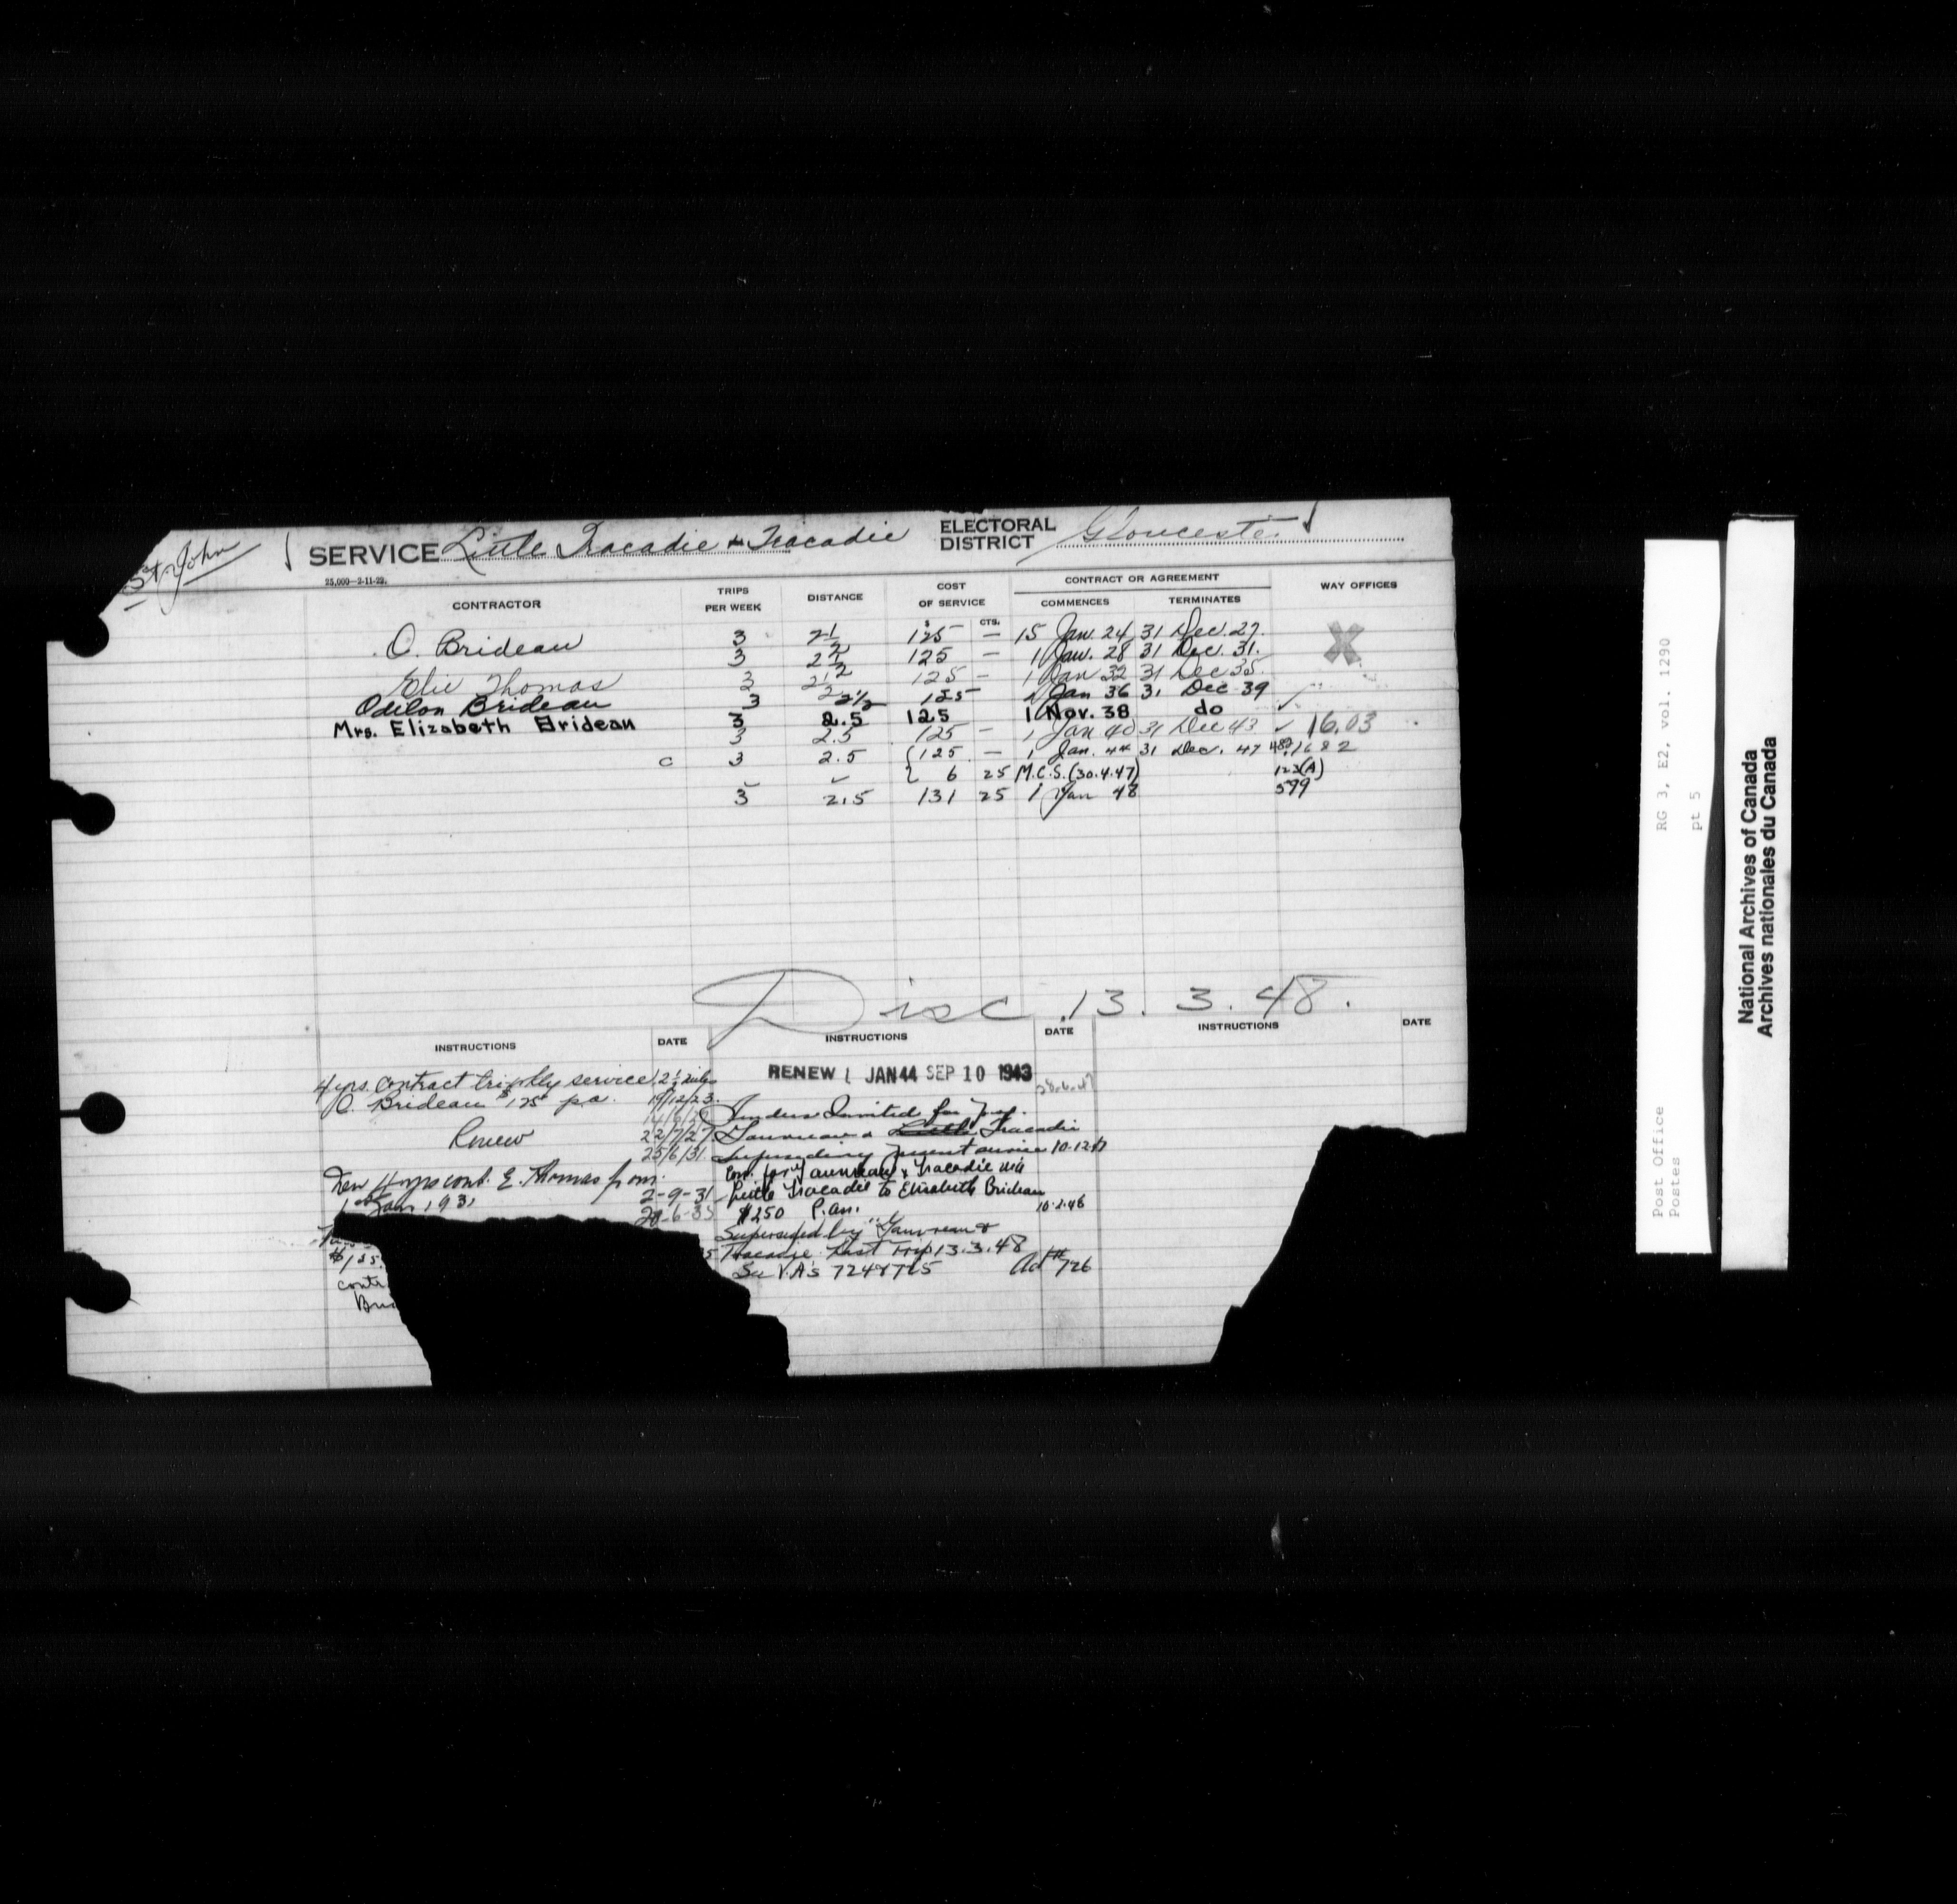 St John
SERVICE Little Tracadie & Tracadie ELECTORAL DISTRICT Gloucester
25,000—2-11-22.
CONTRACTOR TRIPS PER WEEK DISTANCE COST OF SERVICE CONTRACT OR AGREEMENT WAY OFFICES
COMMENCES TERMINATES
$ CTS.
O. Brideau 3 2½ 125 — 15 Jan. 24 31 Dec. 27. X
3 2½ 125 — 1 Jan. 28 31 Dec. 31.
Elie Thomas 3 2½ 125 — 1 Jan 32 31 Dec 35.
Odilon Brideau 3 2½ 125 1 Jan 36 31 Dec 39
Mrs. Elizabeth Brideau 3 2.5 125 1 Nov. 38 do ✓
3 2.5 125 — 1 Jan 40 31 Dec 43 ✓ 16.03
c 3 2.5 125 — 1 Jan. 44 31 Dec. 47 1682
6 25 M.C.S. (30.4.47) 123(A)
3 2.5 131 25 1 Jan 48 599
Disc. 13. 3. 48.
INSTRUCTIONS DATE INSTRUCTIONS DATE INSTRUCTIONS DATE
RENEW 1 JAN 44 SEP 10 1943
4 yrs. contract tri wkly service 2½ miles
O. Brideau $125 p.a. 19/12/23.
Renew 22/7/27
25/6/31.
New 4 yrs cont. E. Thomas from
1st Jan 1931 2-9-31
28-6-35
$125.
contr
Bri
Tenders Invited for
Gauvreau & Little Tracadie
superseding present service 10-12-47
Con. for Gauvreau & Tracadie via
Little Tracadie to Elisabeth Brideau
$250 P.an. 10.2.48
Superseded by "Gauvreau &
Tracadie Last Trip 13.3.48
See V.A's 724 & 725 Ad #726
RG 3, E2, vol. 1290
pt 5
Post Office
Postes
National Archives of Canada
Archives nationales du Canada